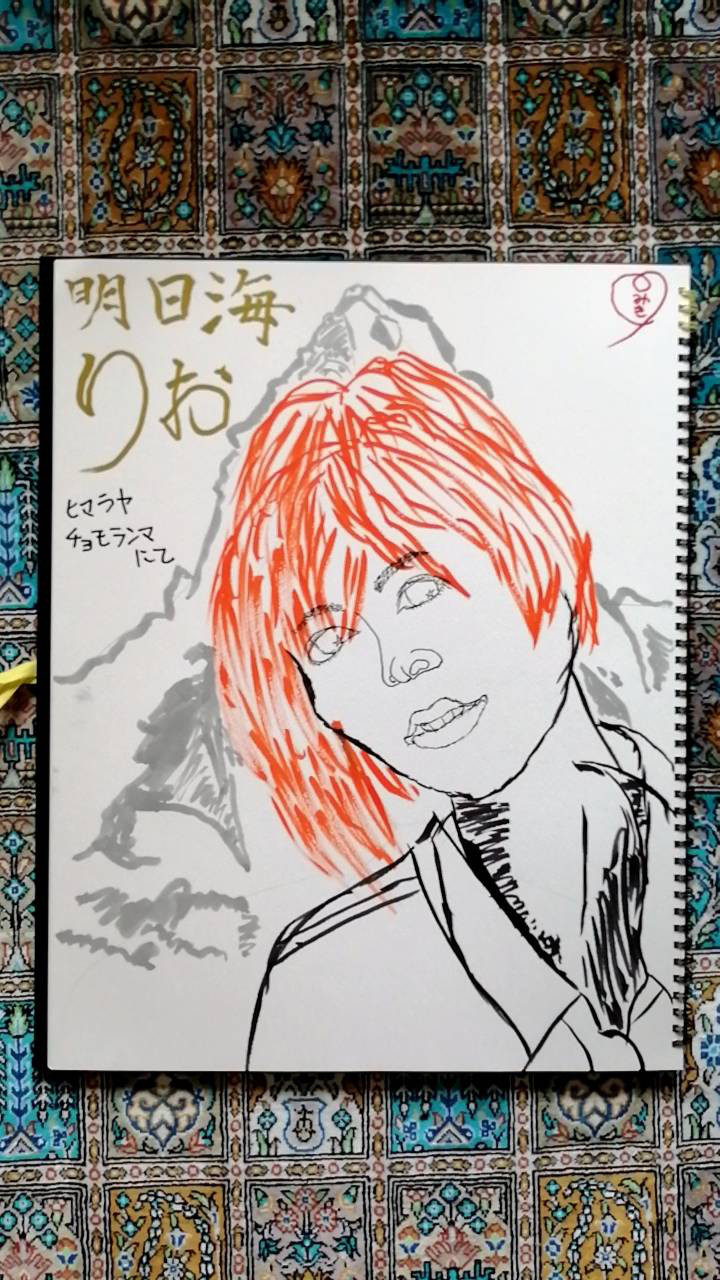 明日海
りお
ヒマラヤ
チョモランマ
にて
みき